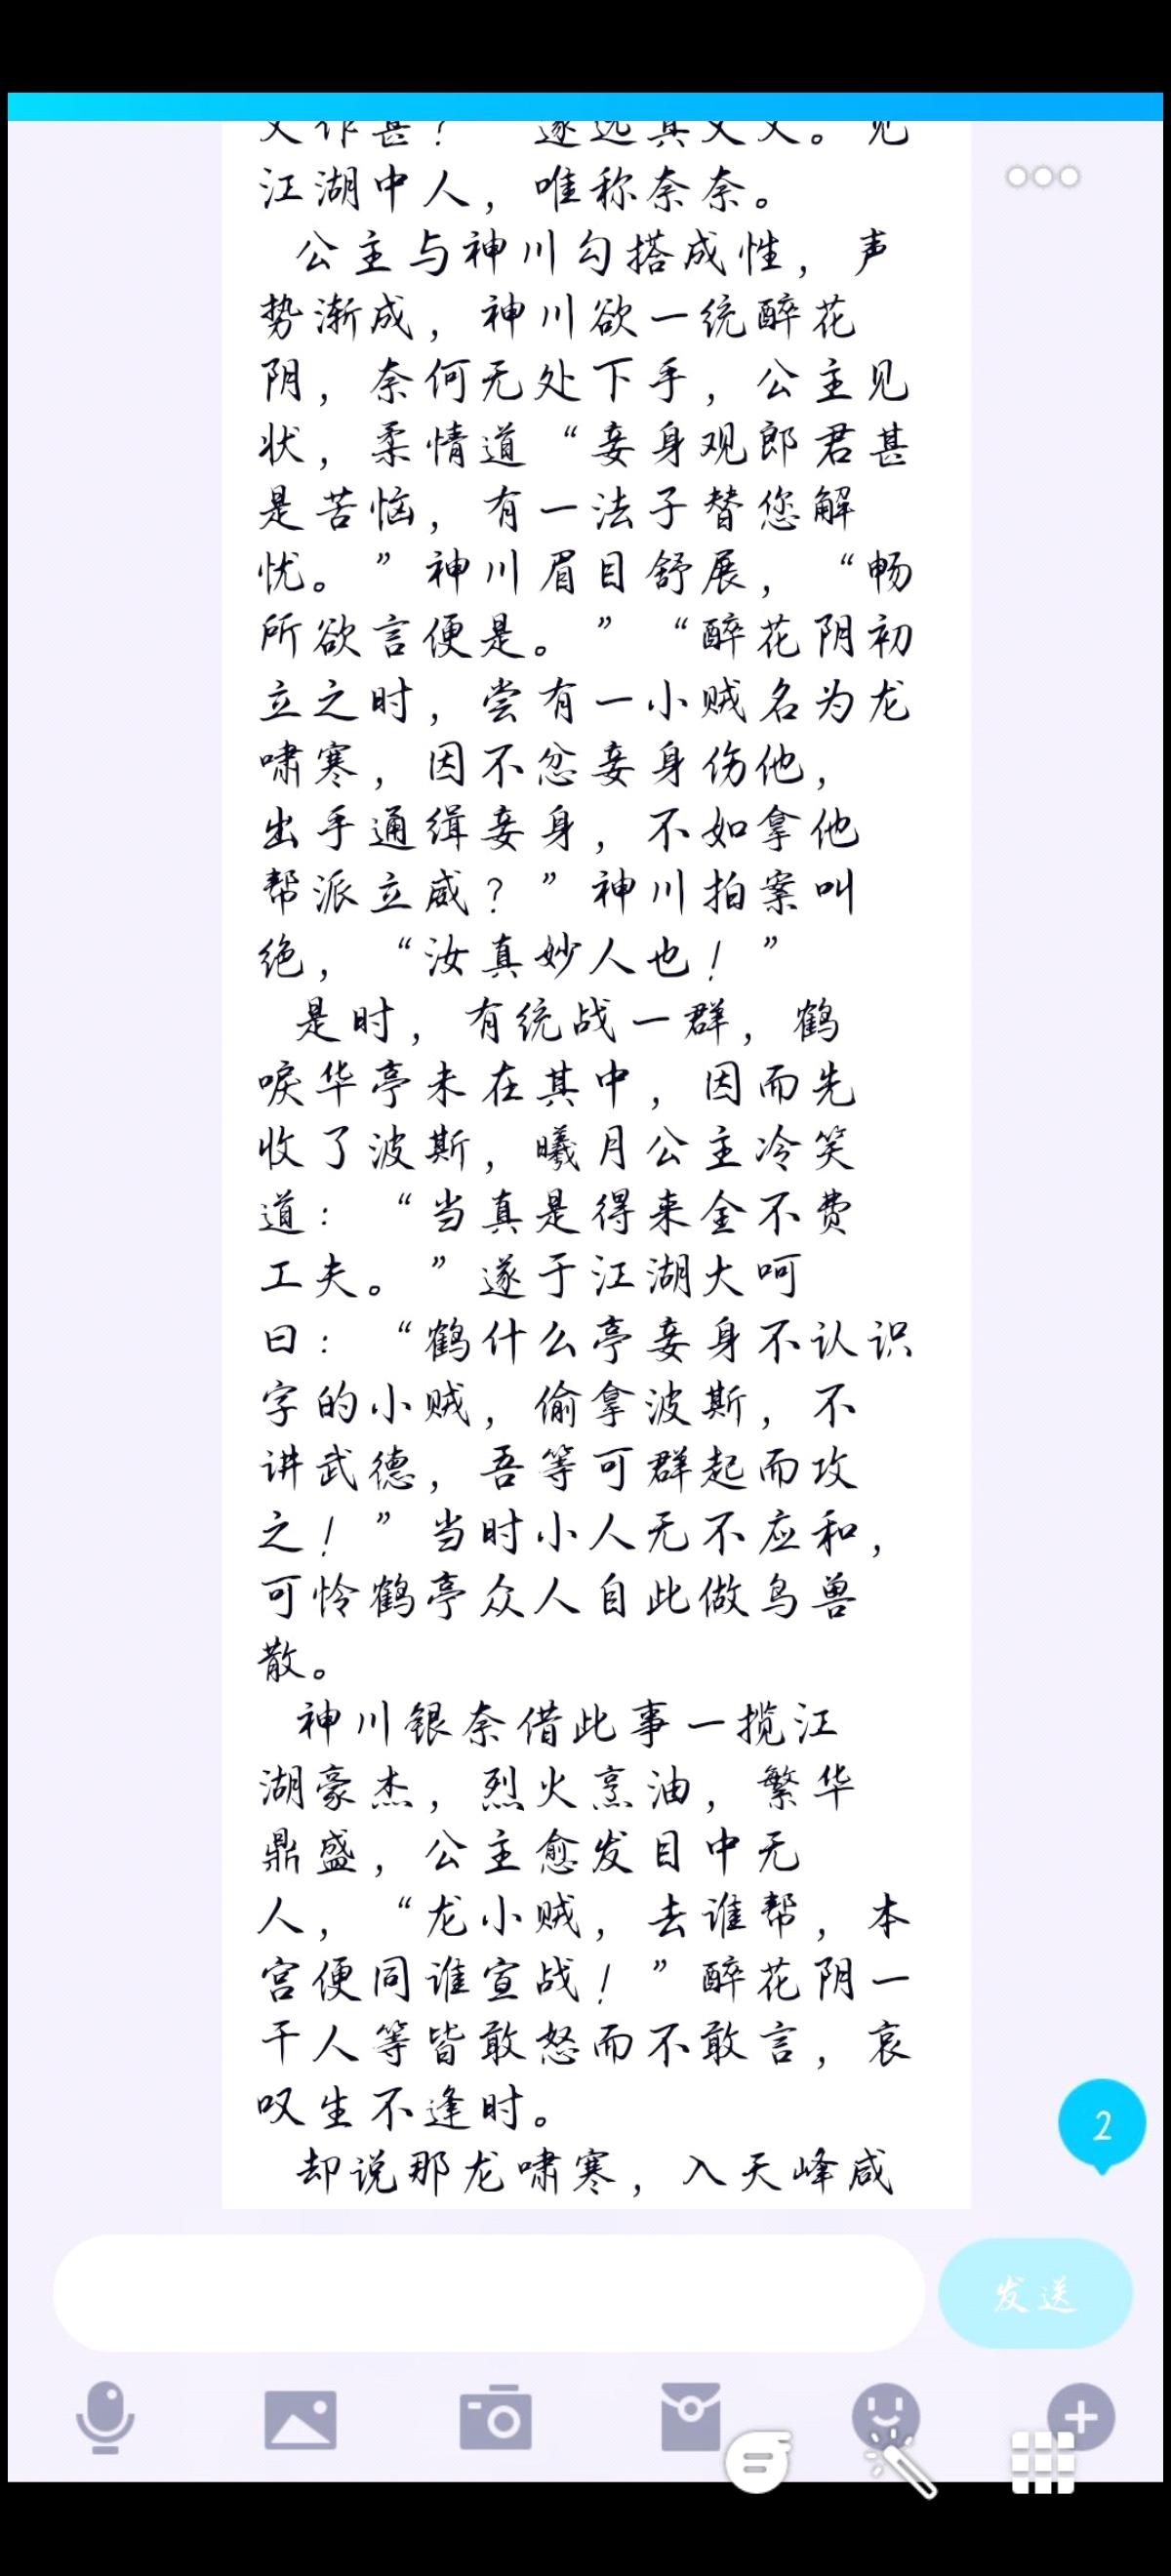 江湖中人，唯称奈奈。
公主与神川勾搭成性，声
势渐成，神川欲一统醉花
阴，奈何无处下手，公主见
状，柔情道“妾身观郎君甚
是苦恼，有一法子替您解
忧。”神川眉目舒展，“畅
所欲言便是。”“醉花阴初
立之时，尝有一小贼名为龙
啸寒，因不忿妾身伤他，
出手通缉妾身，不如拿他
帮派立威？”神川拍案叫
绝，“汝真妙人也！”
是时，有统战一群，鹤
唳华亭未在其中，因而先
收了波斯，曦月公主冷笑
道：“当真是得来全不费
工夫。”遂于江湖大呵
曰：“鹤什么亭妾身不认识
字的小贼，偷拿波斯，不
讲武德，吾等可群起而攻
之！”当时小人无不应和，
可怜鹤亭众人自此做鸟兽
散。
神川银奈借此事一揽江
湖豪杰，烈火烹油，繁华
鼎盛，公主愈发目中无
人，“龙小贼，去谁帮，本
宫便同谁宣战！”醉花阴一
干人等皆敢怒而不敢言，哀
叹生不逢时。
却说那龙啸寒，入天峰咸
2
发送